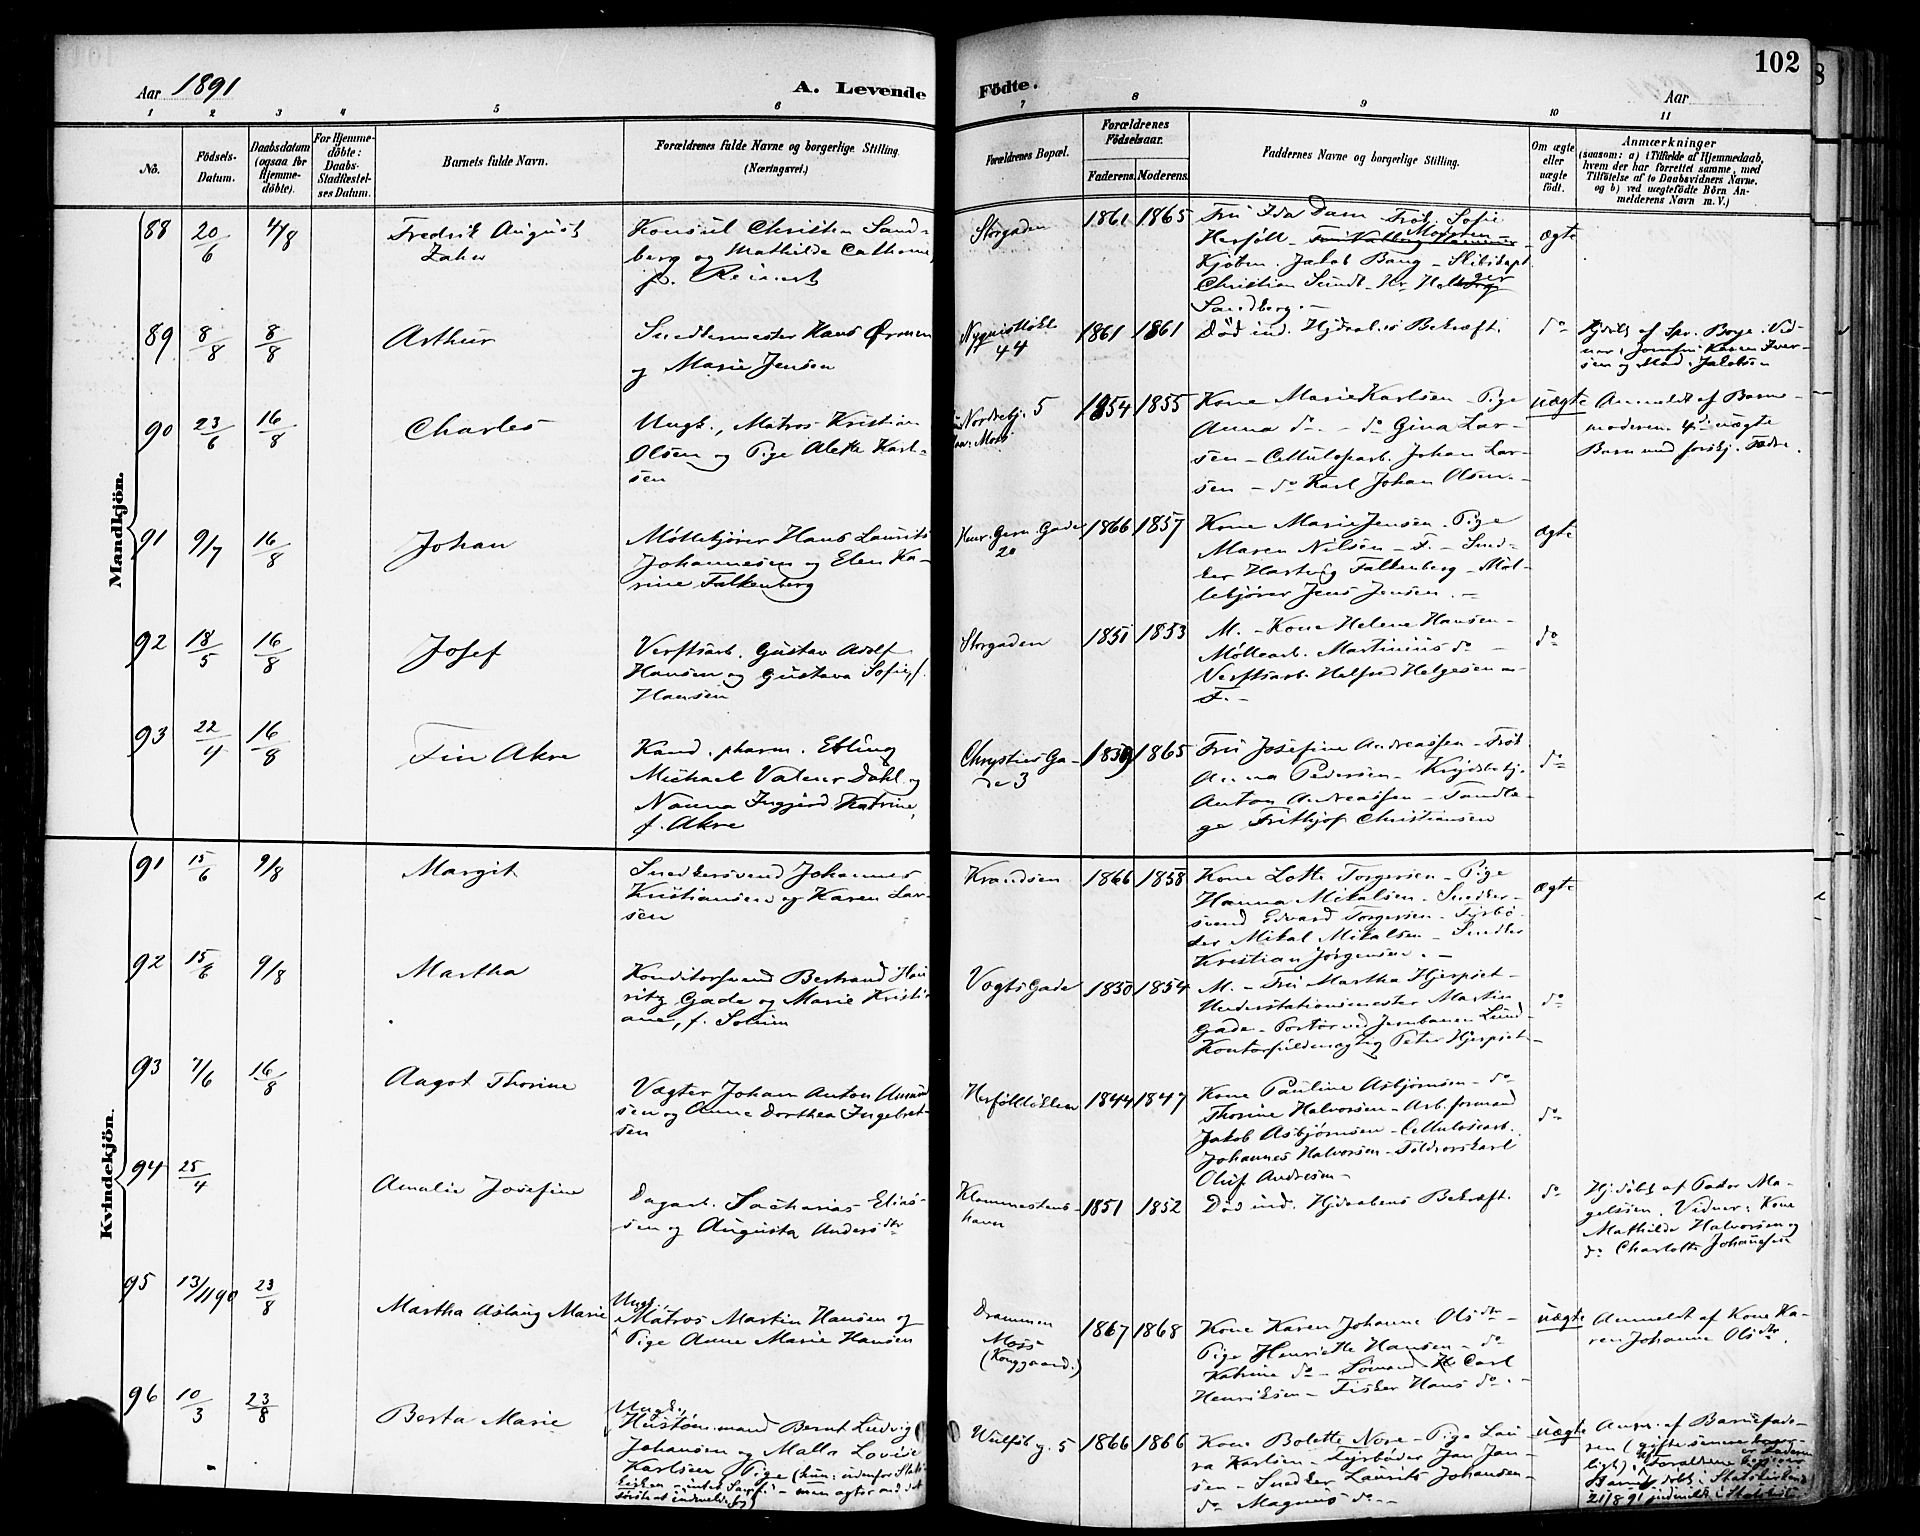 102
Aar 1891
A. Levende
Födte.
Aar
1 2 3 4 5 6 7 8 9 10 11
No.
Födsels-Datum.
Daabsdatum (ogsaa för Hjemme-döbte).
For Hjemme-döbte: Daabs-Stadfæstel-ses Datum.
Barnets fulde Navn.
Forældrenes fulde Navne og borgerlige Stilling.
(Næringsvei.)
Forældrenes Bopæl.
Forældrenes Födselsaar.
Faderens. Moderens.
Faddernes Navne og borgerlige Stilling.
Om ægte eller uægte födt.
Anmærkninger
(saasom: a) i Tilfælde af Hjemmedaab,
hvem der har forrettet samme, med
Tilföielse af to Daabsvidners Navne,
og b) ved uægtefödte Börn An-
melderens Navn m. V.)
Mandkjön.
88 20/6 4/8
Fredrik August
Konsul Christen Sand-
berg og Mathilde Cathrine,
f. Reinert
Storgaden
1861 1865
Frü Ida Dam Frøk. Sofie
Herföll
Kjøbm. Jakob Bang - Skibskapt.
Christian Sundt - Hr.
Sandberg. -
ægte
89 8/8 8/8
Arthur
Snedkermester Hans
og Marie Jensen
44
1861 1861
Død ind. Hjdaabens Bekræft.
do
90 23/6 16/8
Charles
Ungk., Matros Kristian
Olsen og Pige Alette Karl-
sen
Nordrebj. 5
Moss
1854 1855
Kone Marie Karlsen - Pige
Anna do - do Gina Lar-
sen - Cellulosarb. Johan Lar-
sen - do Karl Johan Olsen. -
uægte
Anmeldt af Barne-
moderen. 4d uægte
Barn med forskj. Fædre.
91 9/7 16/8
Johan
Møllekjører Hans Laurits
Johannesen og Elen Ka-
rine Falkenberg
Henr. Gern. Gade
20
1866 1857
Kone Marie Jensen - Pige
Maren Nilsen - F. - Sned-
ker Hartvig Falkenberg - Møl-
lekjører Jens Jensen. -
ægte
92 18/5 16/8
Josef
Verftsarb. Gustav Adolf
Hansen og Gustava Sofie, f.
Hansen
Storgaden
1851 1853
M. - Kone Helene Hansen -
Møllearb. Martinius do -
Verftsarb. Halfred Helgesen -
F. -
do
93 22/4 16/8
Fin Akre
Kand. pharm. Erling
Michael Valeur Dahl og
Nanna Ingjerd Katrine,
f. Akre
Chrysties Ga-
de 3
1859 1865
Frü Josefine Andreassen - Frøk.
Anna Pedersen -
Anton Andreassen - Tandlæ-
ge Frithjof Christiansen
do
Kvindekjön.
91 15/6 9/8
Margit
Snedkersvend Johannes
Kristiansen og Karen Lar-
sen
Krandsen
1866 1858
Kone Lotte Torgersen - Pige
Hanna Mikalsen - Snedker-
svend Edvard Torgersen - Fyrbø-
der Mikal Mikalsen - Snedker
Kristian Jørgensen. -
ægte
92 15/6 9/8
Martha
Konditorsvend Bertrand Hau-
ritz Gade og Marie Kristi-
ane, f. Solum
Vogts Gade
1850 1854
M. - Frü Martha Hjerpset -
Understationsmester Martin
Gade - Portør ved Jernbanen Lund -
Kontorfuldmægtig Peter Hjerpset -
do
93 7/6 16/8
Aagot Thorine
Vægter Johan Anton Amund-
sen og Anne Dorthea Ingebret-
sen
Herföllløkken
1844 1847
Kone Pauline Asbjørnsen - do
Thorine Halvorsen - Arb.formand
Jakob Asbjørnsen - Cellulosearb.
Johannes Halvorsen -
Oluf Andresen -
do
94 25/4
Amalie Josefine
Dagarb. Sacharias Elias-
sen og Augusta Andersdtr
havn
1851 1852
Død ind. Hjdaabens Bekræft.
do
Hjdøbt af Pastor Ma-
gelssen. Vidner: Kone
Mathilde Halvorsen og
do Charlotte Johannesen
95 13/11 90 23/8
Martha Aslaug Marie
Ungk.,
Matros Martin Hansen og
Pige Anne Marie Hansen
Drammen
Moss
(Konggaard.)
1867 1868
Kone Karen Johanne Olsdtr -
Pige Henriette Hansen - do
Katrine do - Sømand Carl
Henriksen - Fisker Hans do. -
uægte
Anmeldt af Kone Ka-
ren Johanne Olsdtr.
96 10/3 23/8
Berta Marie
Ungk.,
Hustømmermand Bernt Ludvig
Johansen og Malla Lovise
Karlsen, Pige
Wulfsb. g. 5
1866 1866
Kone Bolette Nore - Pige Lau-
ra Karlsen - Fyrbøder Jan Jan-
sen - Snedker Laurits Johansen -
do Magnus do -
uægte
Anm. af Barnefade-
ren